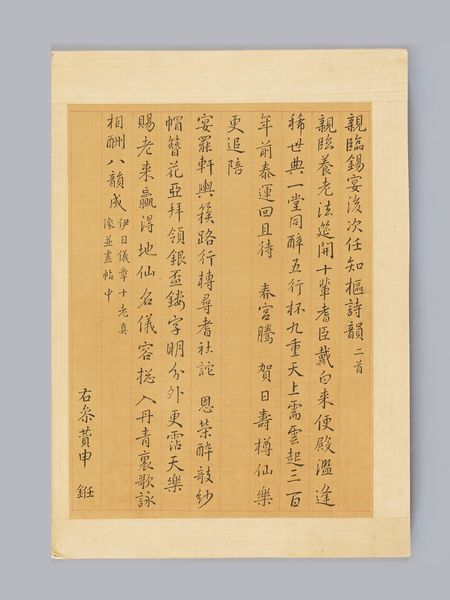 親臨錫宴後次任知樞詩韻 二首
親臨養老法筵開十輩耆臣戴白来便殿濫逢
稀世典一堂同醉五行杯九重天上需雲起三百
年前泰運回且待 春宮騰 賀日壽樽仙樂
更追陪
宴罷軒輿簇路行轉尋耆社詑 恩榮醉敧紗
帽簪花亞拜領銀盃鐫字明分外更霑天樂
賜老来贏得地仙名儀容摠入丹青裏歌詠
相酬八韻成
伊日儀章十老真
像並畫帖中
右叅賛申 銋